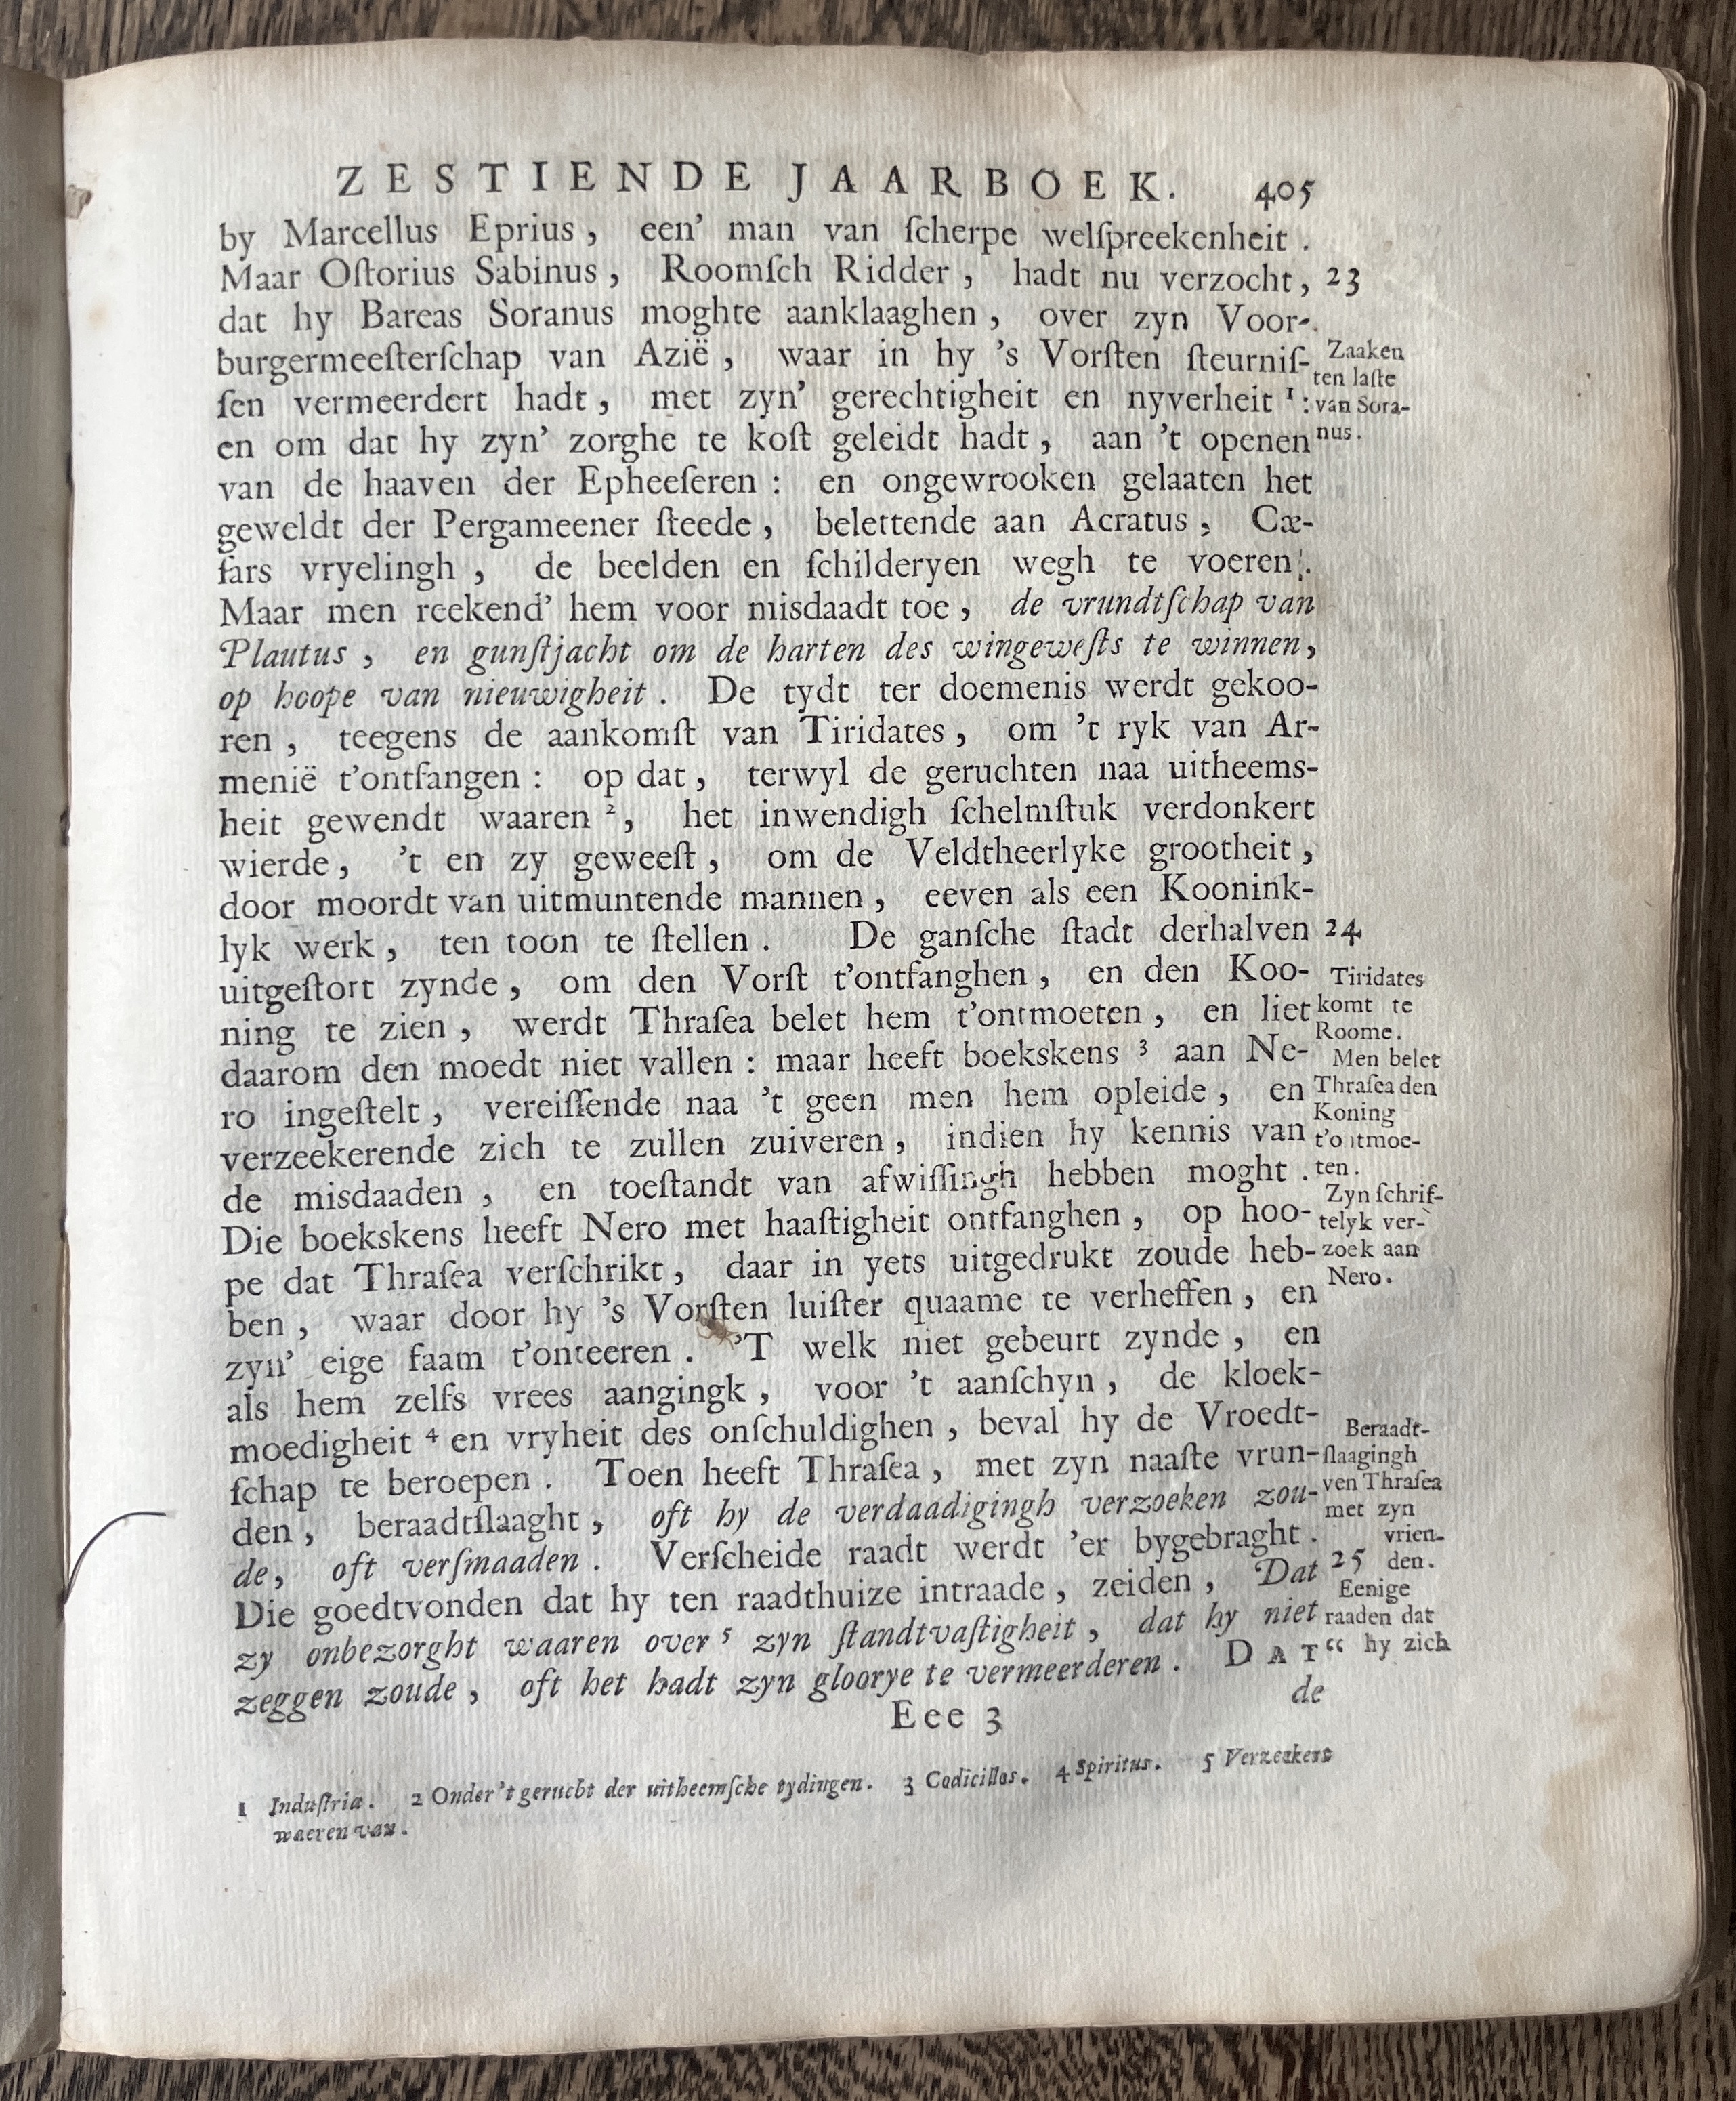 ZESTIENDE JAARBOEK. 405
by Marcellus Eprius, een' man van ſcherpe welſpreekenheit.
Maar Oſtorius Sabinus, Roomſch Ridder, hadt nu verzocht, 23
dat hy Bareas Soranus moghte aanklaaghen, over zyn Voor-
burgermeeſterſchap van Azië, waar in hy 's Vorſten ſteurniſ-
ſen vermeerdert hadt, met zyn' gerechtigheit en nyverheit ¹:
en om dat hy zyn' zorghe te koſt geleidt hadt, aan 't openen
van de haaven der Epheeſeren: en ongewrooken gelaaten het
geweldt der Pergameener ſteede, belettende aan Acratus, Cæ-
ſars vryelingh, de beelden en ſchilderyen wegh te voeren.
Maar men reekend' hem voor misdaadt toe, de vrundtſchap van
Plautus, en gunſtjacht om de harten des wingeweſts te winnen,
op hoope van nieuwigheit. De tydt ter doemenis werdt gekoo-
ren, teegens de aankomſt van Tiridates, om 't ryk van Ar-
menië t'ontfangen: op dat, terwyl de geruchten naa uitheems-
heit gewendt waaren ², het inwendigh ſchelmſtuk verdonkert
wierde, 't en zy geweeſt, om de Veldtheerlyke grootheit,
door moordt van uitmuntende mannen, eeven als een Koonink-
lyk werk, ten toon te ſtellen. De ganſche ſtadt derhalven 24
uitgeſtort zynde, om den Vorſt t'ontfanghen, en den Koo-
ning te zien, werdt Thraſea belet hem t'ontmoeten, en liet
daarom den moedt niet vallen: maar heeft boekskens ³ aan Ne-
ro ingeſtelt, vereiſſende naa 't geen men hem opleide, en
verzeekerende zich te zullen zuiveren, indien hy kennis van
de misdaaden, en toeſtandt van afwiſſingh hebben moght.
Die boekskens heeft Nero met haaſtigheit ontfanghen, op hoo-
pe dat Thraſea verſchrikt, daar in yets uitgedrukt zoude heb-
ben, waar door hy 's Vorſten luiſter quaame te verheffen, en
zyn' eige faam t'onteeren. 'T welk niet gebeurt zynde, en
als hem zelfs vrees aangingk, voor 't aanſchyn, de kloek-
moedigheit ⁴ en vryheit des onſchuldighen, beval hy de Vroedt-
ſchap te beroepen. Toen heeft Thraſea, met zyn naaſte vrun-
den, beraadtſlaaght, oft hy de verdaadigingh verzoeken zou-
de, oft verſmaaden. Verſcheide raadt werdt 'er bygebraght.
Die goedtvonden dat hy ten raadthuize intraade, zeiden, Dat 25
zy onbezorght waaren over ⁵ zyn ſtandtvaſtigheit, dat hy niet
zeggen zoude, oft het hadt zyn gloorye te vermeerderen. DAT“
de
Eee 3
Zaaken
ten laſte
van Sora-
nus.
Tiridates
komt te
Roome.
Men belet
Thraſea den
Koning
t'ontmoe-
ten.
Zyn ſchrif-
telyk ver-
zoek aan
Nero.
Beraadt-
ſlaagingh
ven Thraſea
met zyn
vrien-
den.
Eenige
raaden dat
hy zich
1 Induſtria. 2 Onder 't gerucht der uitheemſche tydingen. 3 Codicillos. 4 Spiritus. 5 Verzeekert
waeren van.